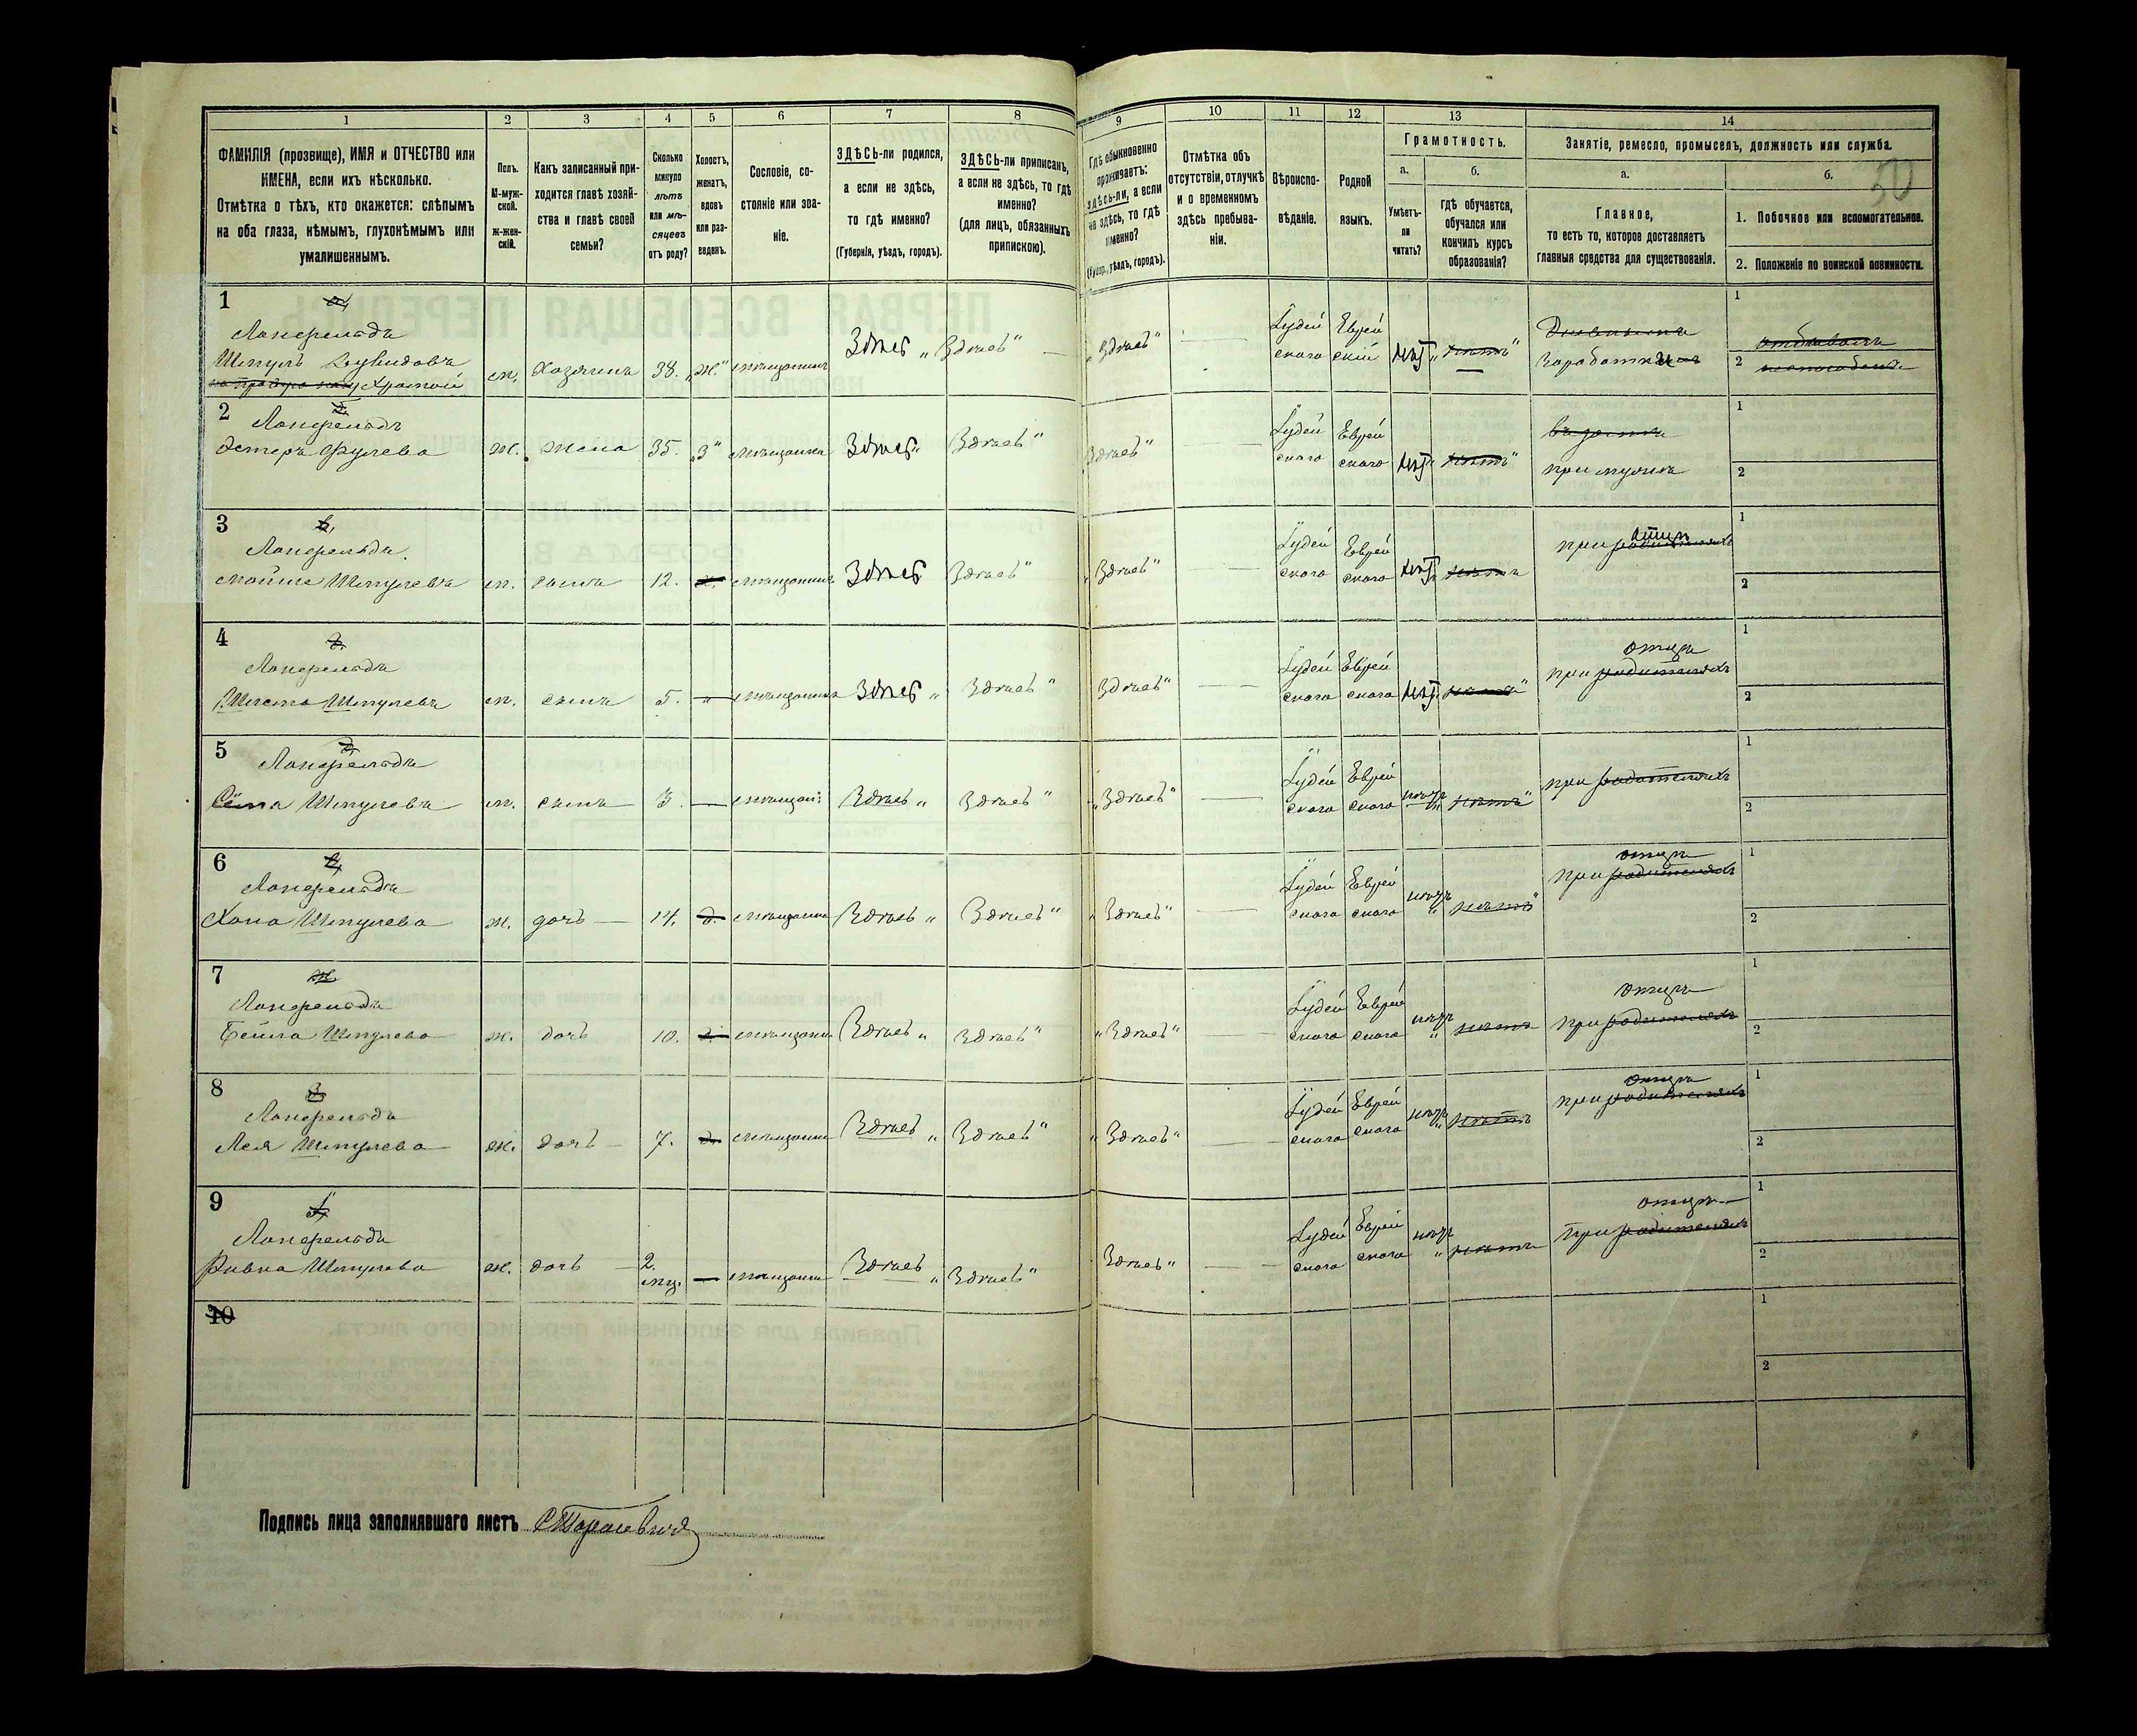 1
2
3
4
5
6
7
8
9
10
11
12
13
14
ФАМИЛІЯ (прозвище), ИМЯ и ОТЧЕСТВО или
ИМЕНА, если ихъ нѣсколько.
Отмѣтка о тѣхъ, кто окажется: слѣпымъ
на оба глаза, нѣмымъ, глухонѣмымъ или
умалишеннымъ.
Полъ.
М-муж-
ской.
ж-жен-
скій.
Какъ записанный при-
ходится главѣ хозяй-
ства и главѣ своей
семьи?
Сколько
минуло
лѣтъ
или мѣ-
сяцевъ
отъ роду?
Холостъ,
женатъ,
вдовъ
или раз-
веденъ.
Сословіе, со-
стояніе или зва-
ніе.
ЗДѢСЬ-ли родился,
а если не здѣсь,
то гдѣ именно?
(Губернія, уѣздъ, городъ).
ЗДѢСЬ-ли приписанъ,
а если не здѣсь, то гдѣ
именно?
(для лицъ, обязанныхъ
припискою).
Гдѣ обыкновенно
проживаетъ:
здѣсь-ли, а если
не здѣсь, то гдѣ
именно?
(Губер., уѣздъ, городъ).
Отмѣтка объ
отсутствіи, отлучкѣ
и о временномъ
здѣсь пребыва-
ніи.
Вѣроиспо-
вѣданіе.
Родной
языкъ.
Грамотность.
а.
Умѣетъ-
ли
читать?
б.
гдѣ обучается,
обучался или
кончилъ курсъ
образованія?
Занятіе, ремесло, промыселъ, должность или служба.
а.
Главное,
то есть то, которое доставляетъ
главныя средства для существованія.
б.
50
1. Побочное или вспомогательное.
2. Положеніе по воинской повинности.
1
Шмуль
Хромой
м.
Хозяинъ
38.
"Ж."
мѣщанинъ
Здѣсь "
Здѣсь"
"Здѣсь"
Іудей
скаго
Еврей
скій
нѣтъ"
Заработки
1
2
2
Эстеръ
ж.
жена
35.
"З"
мѣщанка
Здѣсь"
Здѣсь"
Здѣсь"
Іудей
скаго
Еврей
скаго
нѣтъ"
при мужѣ
1
2
3
Шмулевъ
м.
сынъ
12.
мѣщанинъ
Здѣсь
Здѣсь"
Здѣсь"
Іудей
скаго
Еврей
скаго
нѣтъ
при родителяхъ
отцѣ
1
2
4
Шмулевъ
м.
сынъ
5.
"
мѣщанинъ
Здѣсь "
Здѣсь"
Здѣсь"
Іудей
скаго
Еврей
скаго
нѣтъ"
отцѣ
при родителяхъ
1
2
5
Шмулевъ
м.
сынъ
3.
мѣщан:
Здѣсь "
Здѣсь "
"Здѣсь"
Іудей
скаго
Еврей
скаго
нѣтъ"
при родителяхъ
1
2
6
Хана Шмулева
ж.
дочь
14.
д.
мѣщанка
Здѣсь "
Здѣсь"
"Здѣсь"
Іудей
скаго
Еврей
скаго
нѣтъ"
отцѣ
при родителяхъ
1
2
7
Бейла Шмулева
ж.
дочь
10.
мѣщанка
Здѣсь "
Здѣсь"
"Здѣсь"
Іудей
скаго
Еврей
скаго
нѣтъ
отцѣ
при родителяхъ
1
2
8
Лея Шмулева
ж.
дочь
7.
мѣщанка
Здѣсь "
Здѣсь"
"Здѣсь"
Іудей
скаго
Еврей
скаго
нѣтъ
отцѣ
при родителяхъ
1
2
9
Ривка Шмулева
ж.
дочь
2.
мц.
мѣщанка
Здѣсь "
Здѣсь"
Здѣсь"
Іудей
скаго
Еврей
скаго
нѣтъ
отцѣ
при родителяхъ
1
2
10
1
2
Подпись лица заполнявшаго листъ